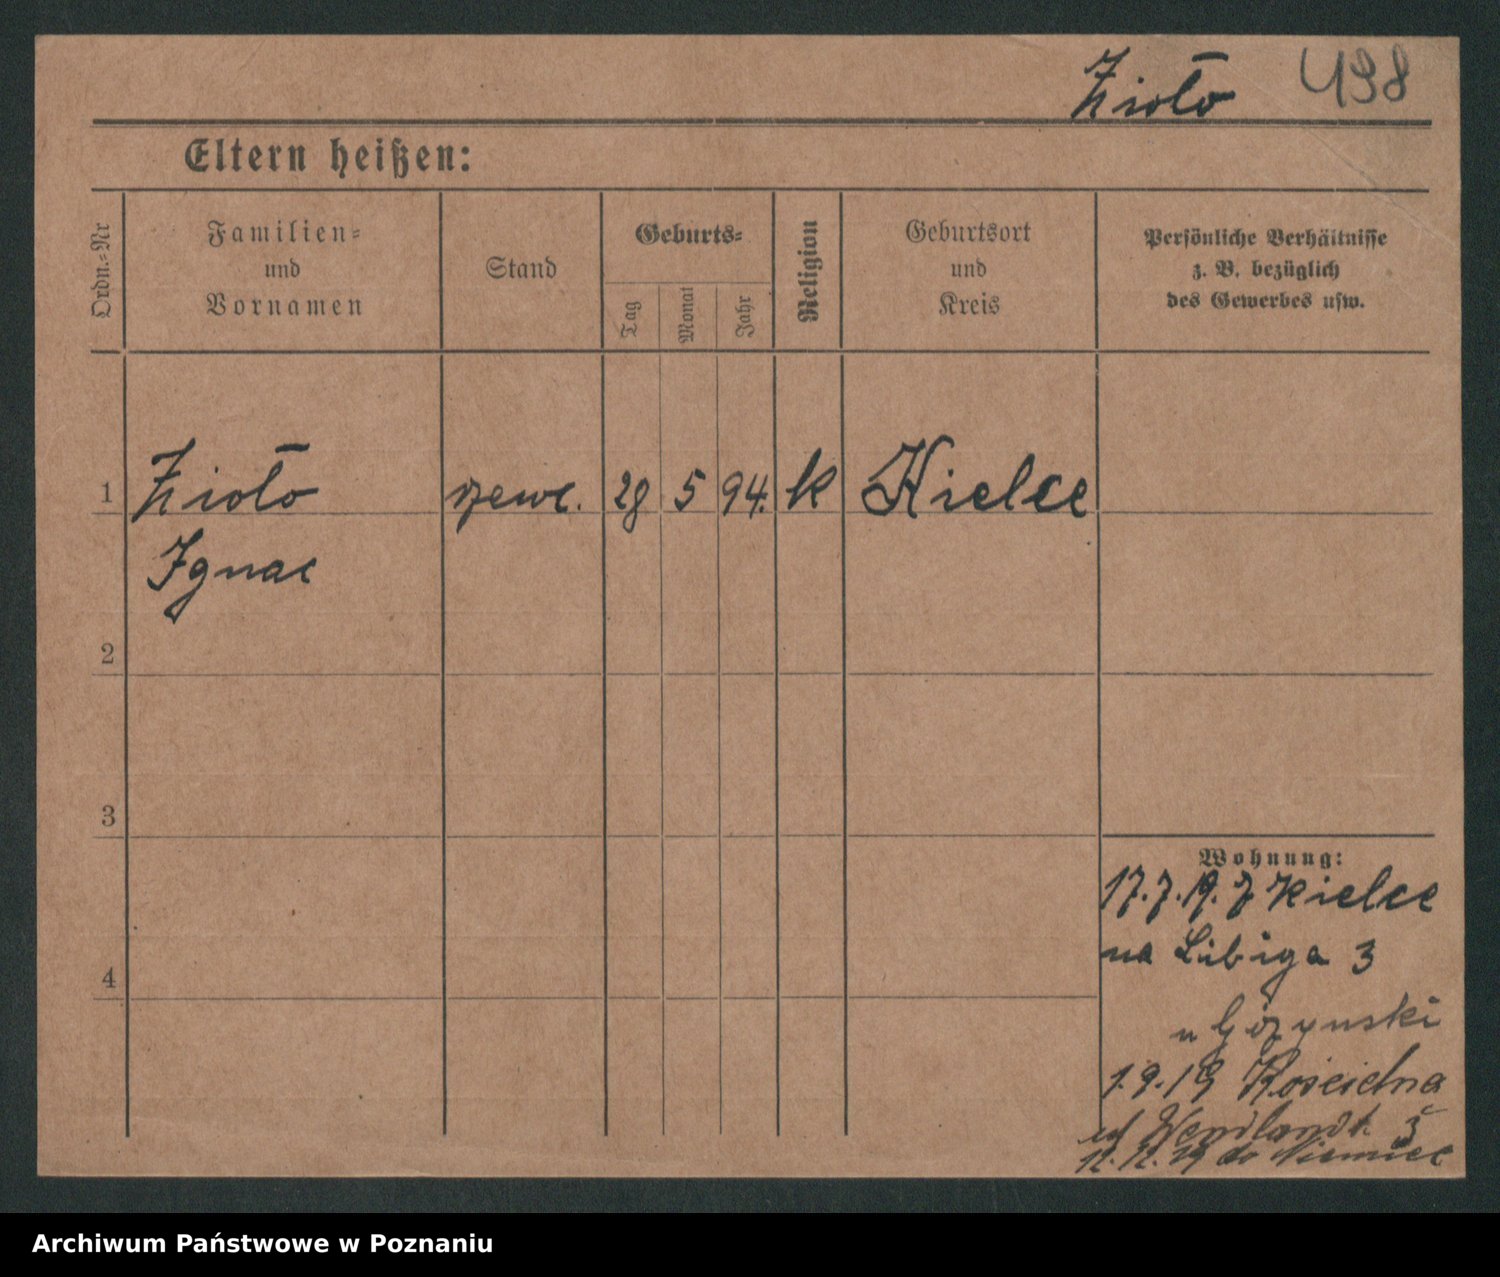 Zioło 498
Eltern heißen:
Ordn.-Nr
Familien-
und
Vornamen
Stand
Geburts-
Tag
Monat
Jahr
Religion
Geburtsort
und
Kreis
Persönliche Verhältnisse
z. B. bezüglich
des Gewerbes usw.
1 Zioło szewc. 28 5 94. k Kielce
Ignac
2
3
4
Wohnung:
17.7.19. z Kielce
na Libiga 3
u
1.9.19 Kościelna
Wendlandt 3
12.12.19 do Niemiec
Archiwum Państwowe w Poznaniu